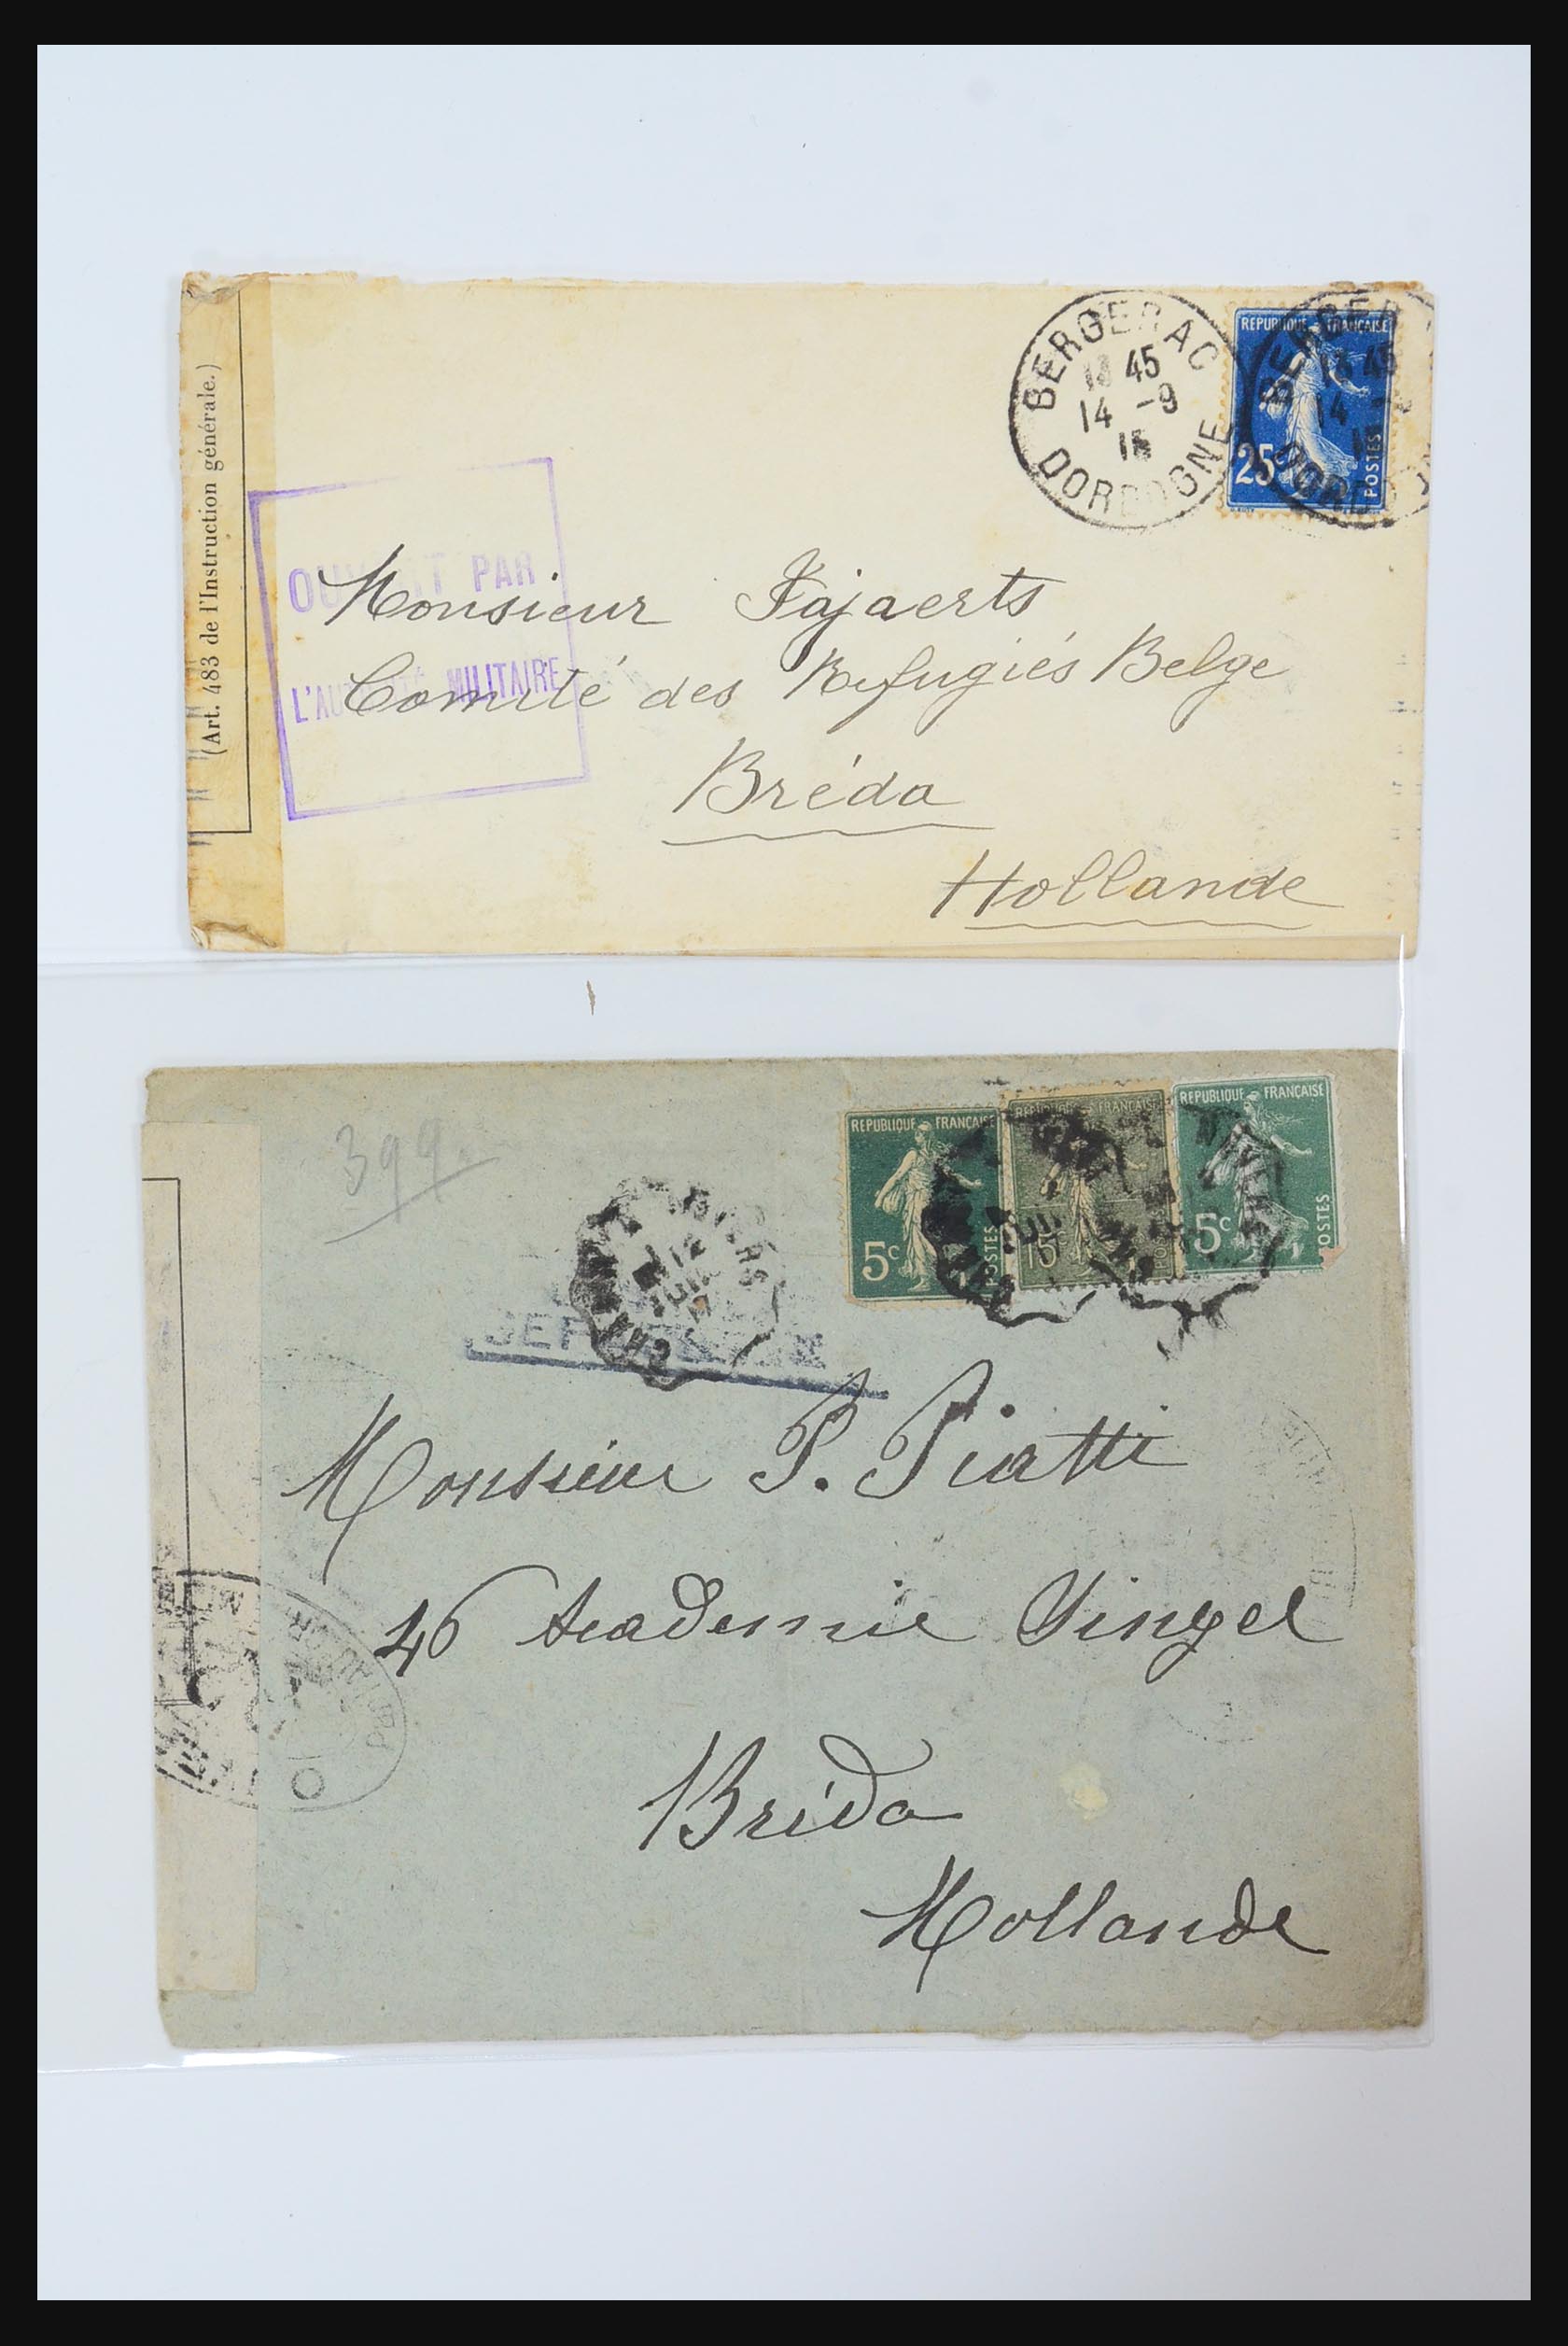 (Art. 483 de l'Instruction générale.)
BERGERAC
13 45
14 -9
15
DORDOGNE
REPUBLIQUE FRANÇAISE
25
POSTES
BERGER
14
OUVERT PAR
L'AUTORITÉ MILITAIRE
Monsieur Fajaerts
Comité des Refugiés Belge
Bréda
Hollande
399
REPUBLIQUE FRANÇAISE
5c
POSTES
REPUBLIQUE FRANÇAISE
15c
REPUBLIQUE FRANÇAISE
5c
POSTES
12
JUIL
Monsieur P. Piatti
46 Academie Singel
Bréda
Hollande